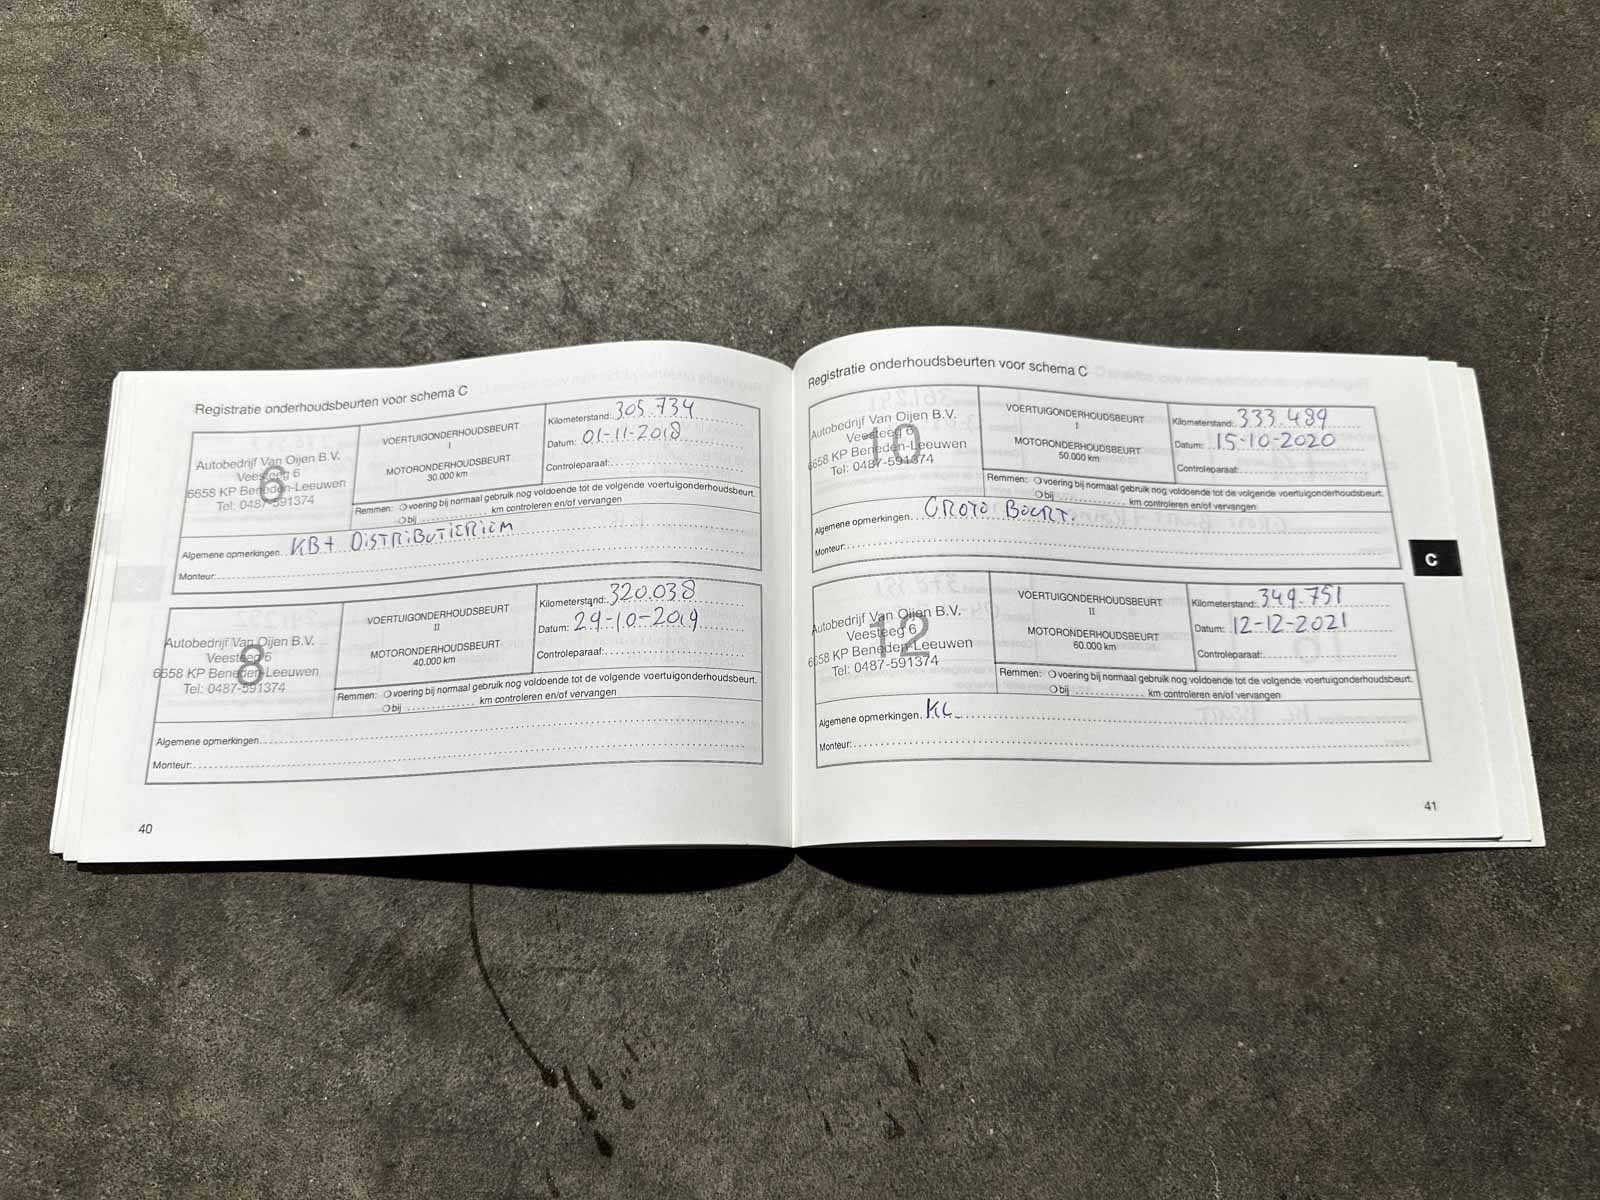 Registratie onderhoudsbeurten voor schema C
6
Autobedrijf Van Oijen B.V.
Veesteeg 6
6658 KP Beneden-Leeuwen
Tel: 0487-591374
VOERTUIGONDERHOUDSBEURT
I
MOTORONDERHOUDSBEURT
30.000 km
Kilometerstand: 305.734
Datum: 01-11-2018
Controleparaaf:
Remmen: voering bij normaal gebruik nog voldoende tot de volgende voertuigonderhoudsbeurt.
bij km controleren en/of vervangen
Algemene opmerkingen. KB+ DISTRIBUTIERIEM
Monteur:
8
Autobedrijf Van Oijen B.V.
Veesteeg 6
6658 KP Beneden-Leeuwen
Tel: 0487-591374
VOERTUIGONDERHOUDSBEURT
II
MOTORONDERHOUDSBEURT
40.000 km
Kilometerstand: 320.038
Datum: 29-10-2019
Controleparaaf:
Remmen: voering bij normaal gebruik nog voldoende tot de volgende voertuigonderhoudsbeurt.
bij km controleren en/of vervangen
Algemene opmerkingen.
Monteur:
40
Registratie onderhoudsbeurten voor schema C
10
Autobedrijf Van Oijen B.V.
Veesteeg 6
6658 KP Beneden-Leeuwen
Tel: 0487-591374
VOERTUIGONDERHOUDSBEURT
I
MOTORONDERHOUDSBEURT
50.000 km
Kilometerstand: 333.489
Datum: 15-10-2020
Controleparaaf:
Remmen: voering bij normaal gebruik nog voldoende tot de volgende voertuigonderhoudsbeurt.
bij km controleren en/of vervangen
Algemene opmerkingen. GROTO BEURT.
Monteur:
C
12
Autobedrijf Van Oijen B.V.
Veesteeg 6
6658 KP Beneden-Leeuwen
Tel: 0487-591374
VOERTUIGONDERHOUDSBEURT
II
MOTORONDERHOUDSBEURT
60.000 km
Kilometerstand: 349.751
Datum: 12-12-2021
Controleparaaf:
Remmen: voering bij normaal gebruik nog voldoende tot de volgende voertuigonderhoudsbeurt.
bij km controleren en/of vervangen
Algemene opmerkingen. KL
Monteur:
41